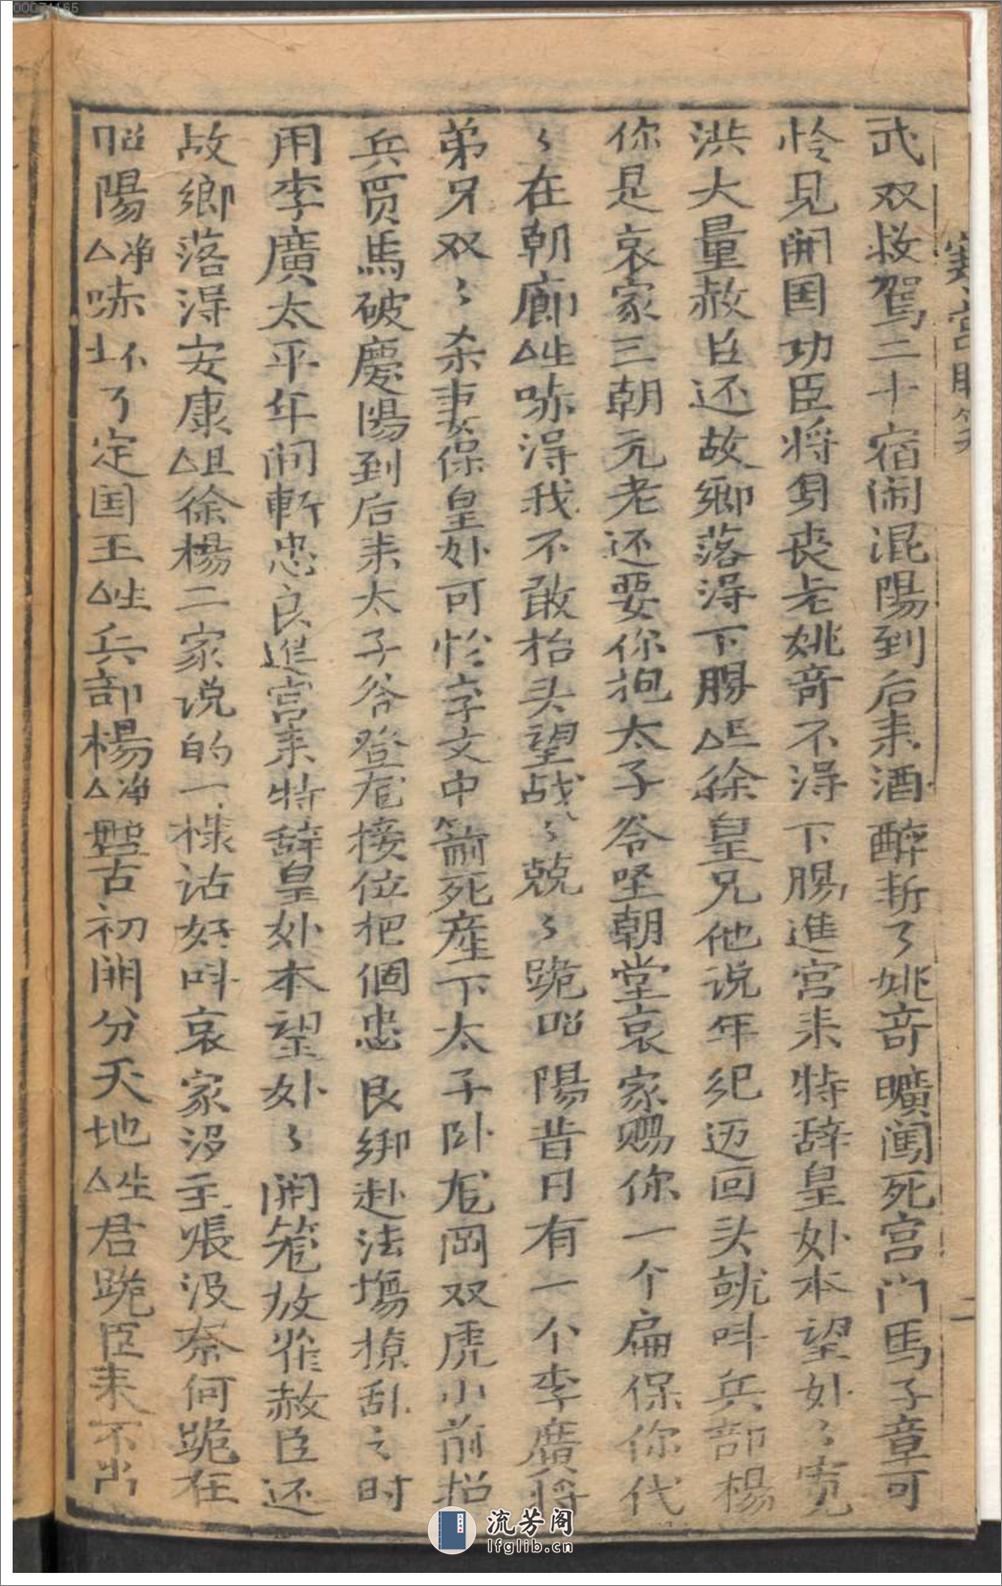 00071165
武双救驾二十宿闹混陽到后来酒醉斩了姚竒曠闖死宫门馬子章可
怜见開国功臣将身丧老姚竒不淂下賜進宫来特辞皇処本望処〻宽
洪大量赦臣还故鄉落淂下賜△旦徐皇兄他说年纪迈回头就呌兵部楊
你是哀家三朝元老还要你抱太子爷坐朝堂哀家赐你一个扁保你代
〻在朝廊△生唬淂我不敢抬头望战〻兢〻跪昭陽昔日有一个李廣将
弟兄双〻杀妻保皇処可怜字文中箭死産下太子卧龙岡双虎小前招
兵贾馬破慶陽到后来太子爷登龙接位把個忠良绑赴法塲撩乱之时
用李廣太平年间斬忠良進宫来特辞皇処本望処〻開笼放雀赦臣还
故鄉落淂安康△旦徐楊二家说的一樣话好呌哀家沒主張没奈何跪在
昭陽△净唬坏了定国王△生兵部楊△净盤古初開分天地△生君跪臣来不当
二
流芳阁
lfglib.cn